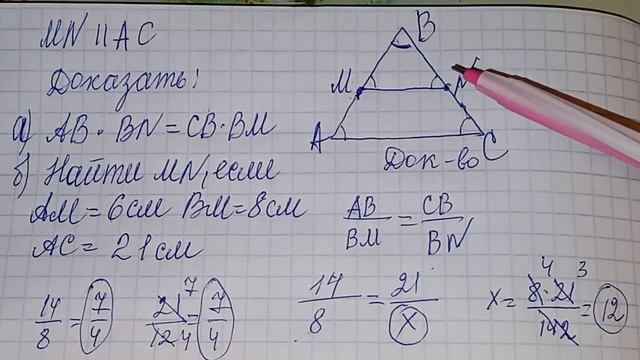 MN || AC
Доказать!
а) AB · BN = CB · BM
б) Найти MN, если
AM = 6 см BM = 8 см
AC = 21 см
B
M N
A C
Док-во
AB/BM = CB/BN
14/8 = 7/4
21/12 7/4 = 7/4
14/8 = 21/x
x = 8·21/14 4 3 2 = 12